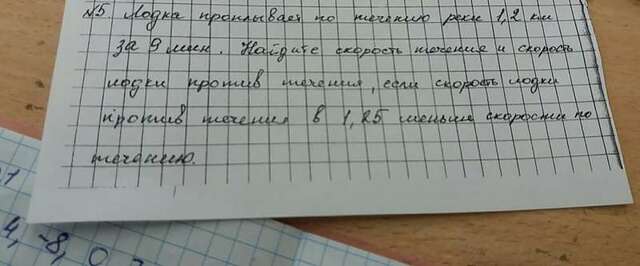 №5 Лодка проплывает по течению реки 1,2 км
за 9 мин. Найдите скорость течения и скорость
лодки против течения, если скорость лодки
против течения в 1,25 меньше скорости по
течению.
4, -8, 0